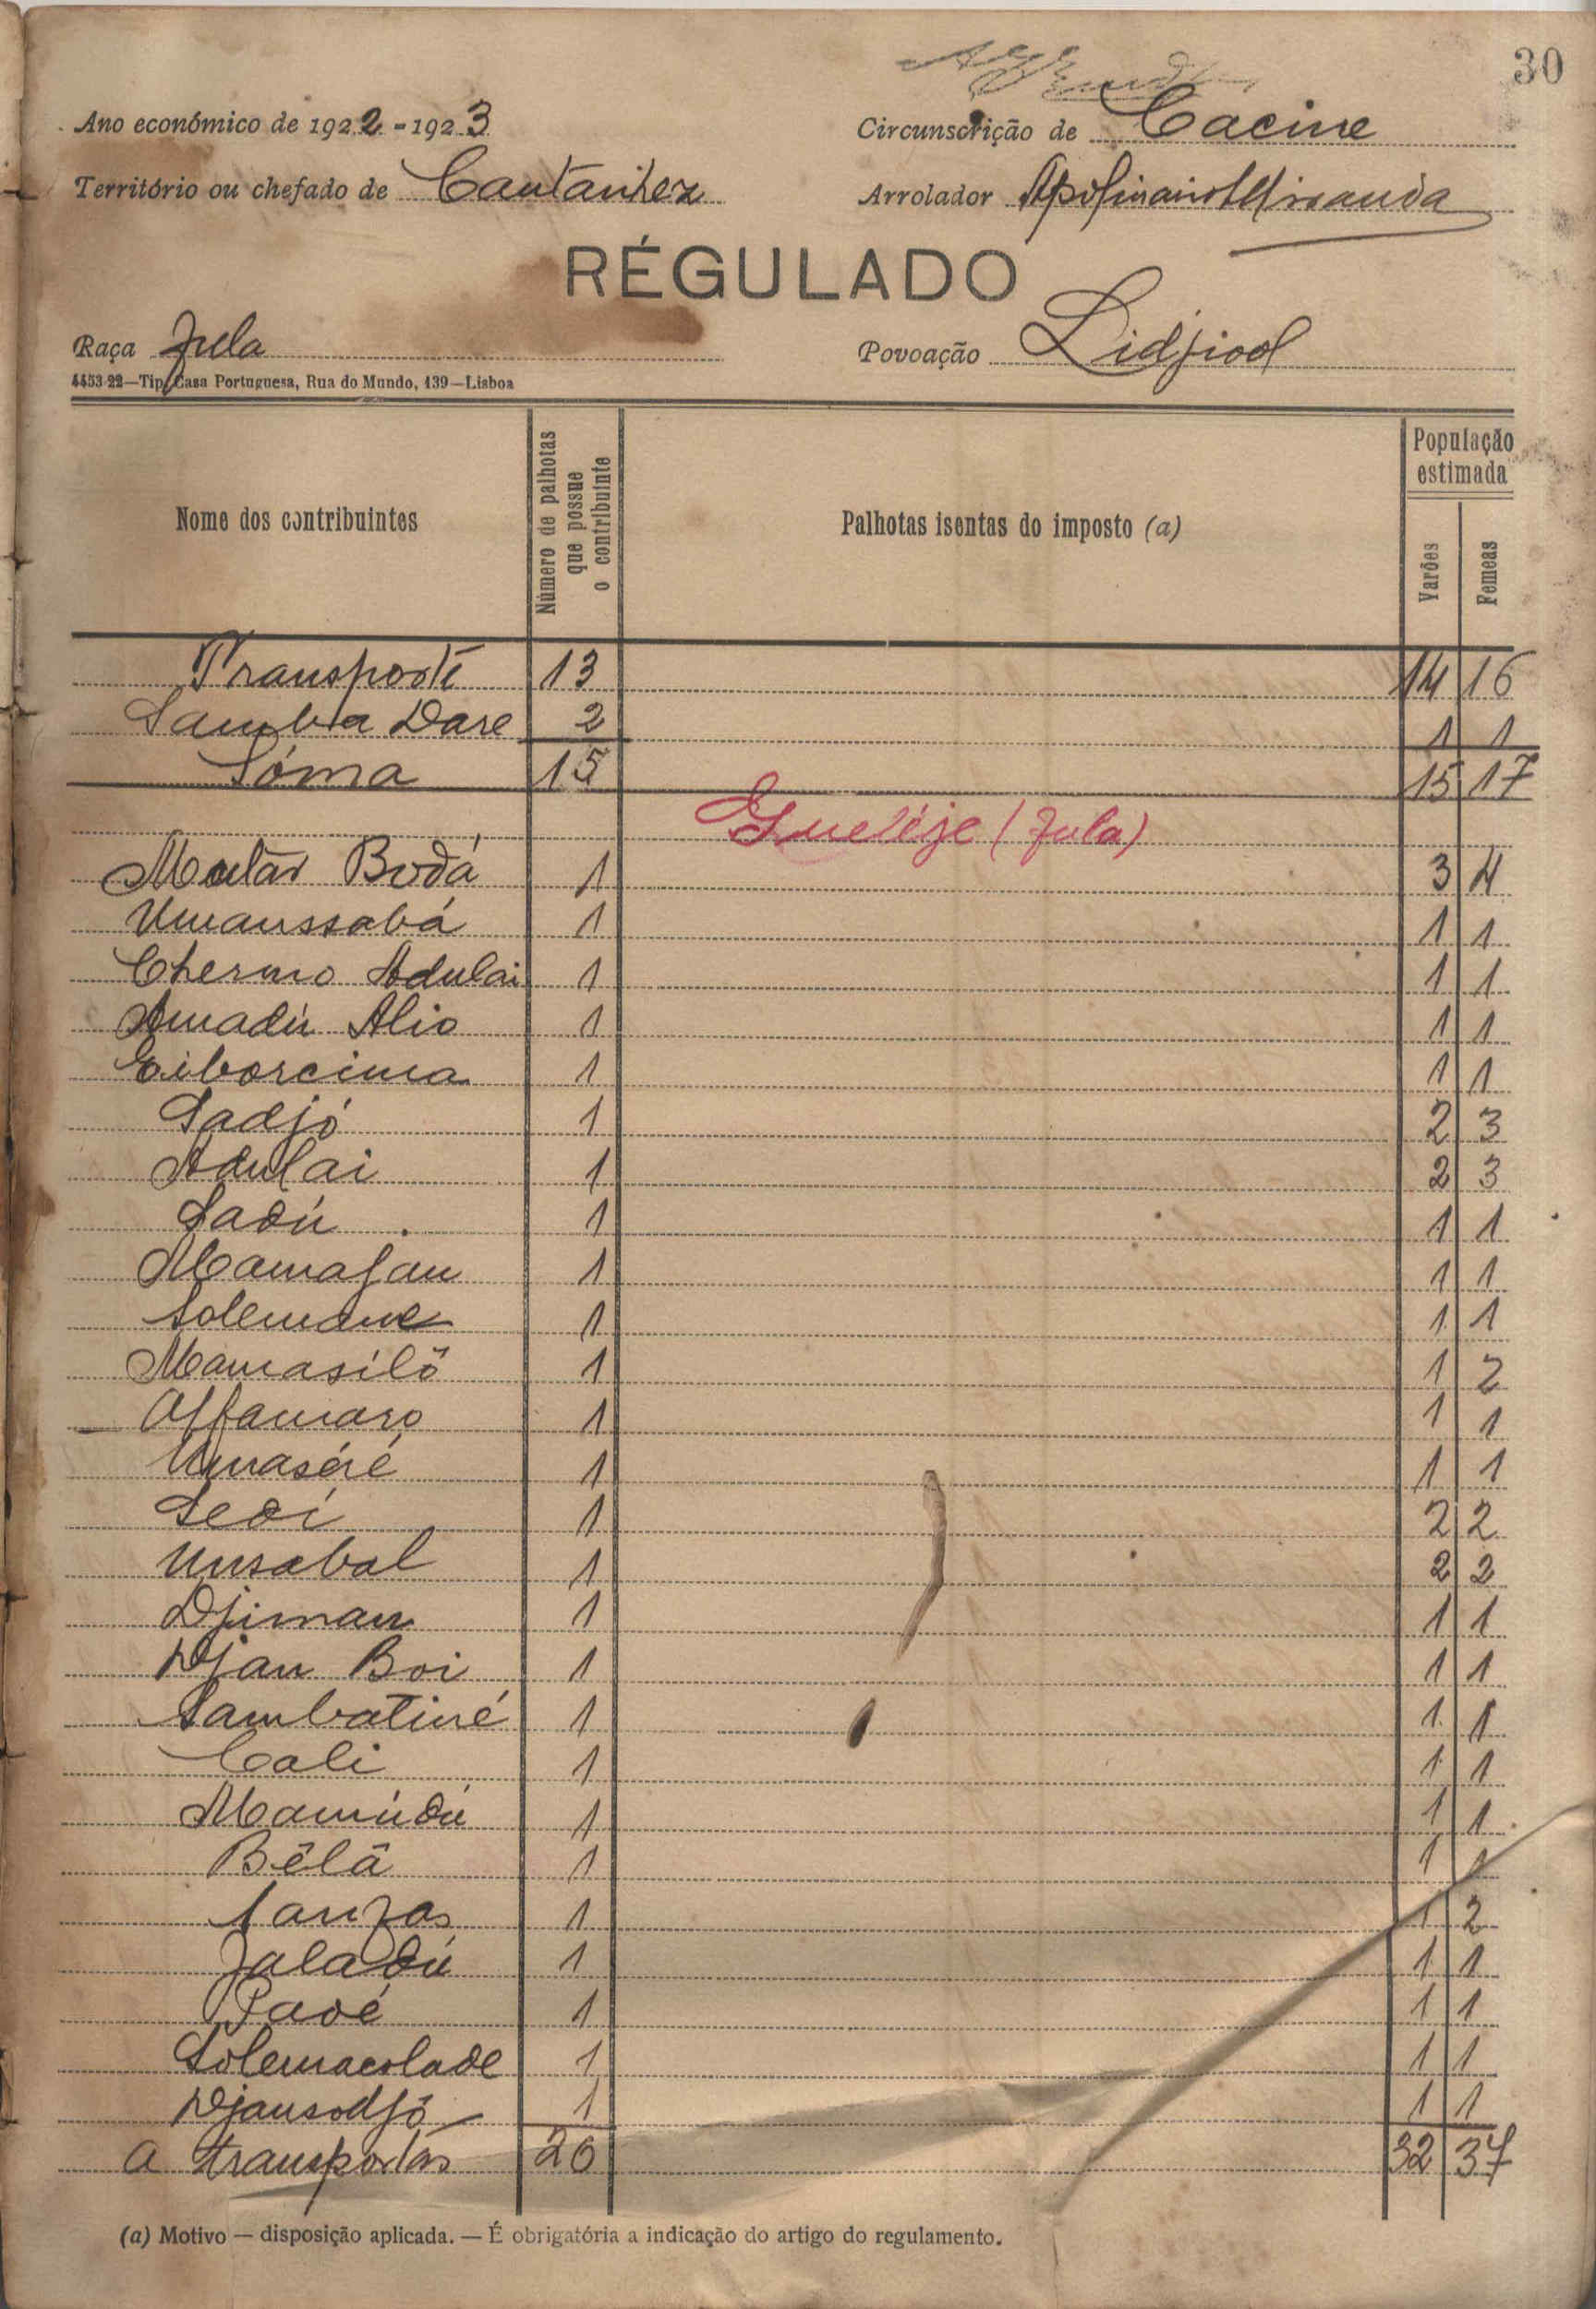 30
Ano económico de 1922-1923
Circunscrição de Cacine
Território ou chefado de Cantanhez
Arrolador Apolinario Miranda
RÉGULADO
Raça Fula
Povoação Lidjiool
4453-22—Tip. Casa Portuguesa, Rua do Mundo, 139—Lisboa
Nome dos contribuintes | Número de palhotas que possue o contribuinte | Palhotas isentas do imposto (a) | População estimada
Varões | Femeas
Transporte 13 14 16
Samba Dare 2 1 1
Sóma 15 15 17
Gueléje (Fula)
Mutar Bodá 1 3 4
Umaussabá 1 1 1
Cherno Adulai 1 1 1
Amadú Alio 1 1 1
Eiborcima 1 1 1
Sadjó 1 2 3
Adulai 1 2 3
Sadú 1 1 1
Mamafan 1 1 1
Solemane 1 1 1
Mamasiló 1 1 2
Alfamaro 1 1 1
Umaséré 1 1 1
Sedi 1 2 2
Umsabal 1 2 2
Djiman 1 1 1
Djan Boi 1 1 1
Sambatiné 1 1 1
Cali 1 1 1
Mamúdú 1 1 1
Bêlâ 1 1 1
1 1 2
Jaladú 1 1 1
Padé 1 1 1
Solemacolade 1 1 1
Djansodjó 1 1 1
a transportar 26 32 37
(a) Motivo — disposição aplicada. — É obrigatória a indicação do artigo do regulamento.